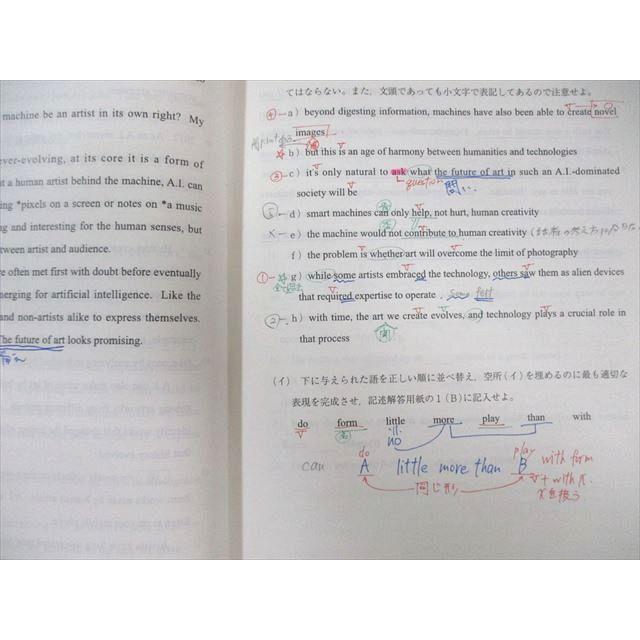 machine be an artist in its own right? My
ever-evolving, at its core it is a form of
a human artist behind the machine, A.I. can
ing *pixels on a screen or notes on *a music
ng and interesting for the human senses, but
tween artist and audience.
e often met first with doubt before eventually
merging for artificial intelligence. Like the
and non-artists alike to express themselves.
The future of art looks promising.
てはならない。また,文頭であっても小文字で表記してあるので注意せよ。
④ a) beyond digesting information, machines have also been able to create novel
images
b) but this is an age of harmony between humanities and technologies
③ c) it's only natural to ask what the future of art in such an A.I.-dominated
question 問い
society will be
⑤ d) smart machines can only help, not hurt, human creativity
× e) the machine would not contribute to human creativity
f) the problem is whether art will overcome the limit of photography
① g) while some artists embraced the technology, others saw them as alien devices
that required expertise to operate. some
② h) with time, the art we create evolves, and technology plays a crucial role in
that process
(イ) 下に与えられた語を正しい順に並べ替え,空所(イ)を埋めるのに最も適切な
表現を完成させ,記述解答用紙の1(B)に記入せよ。
do form little more play than with
V 名 no
do play
can A little more than B with form
同じ形 V + with 名